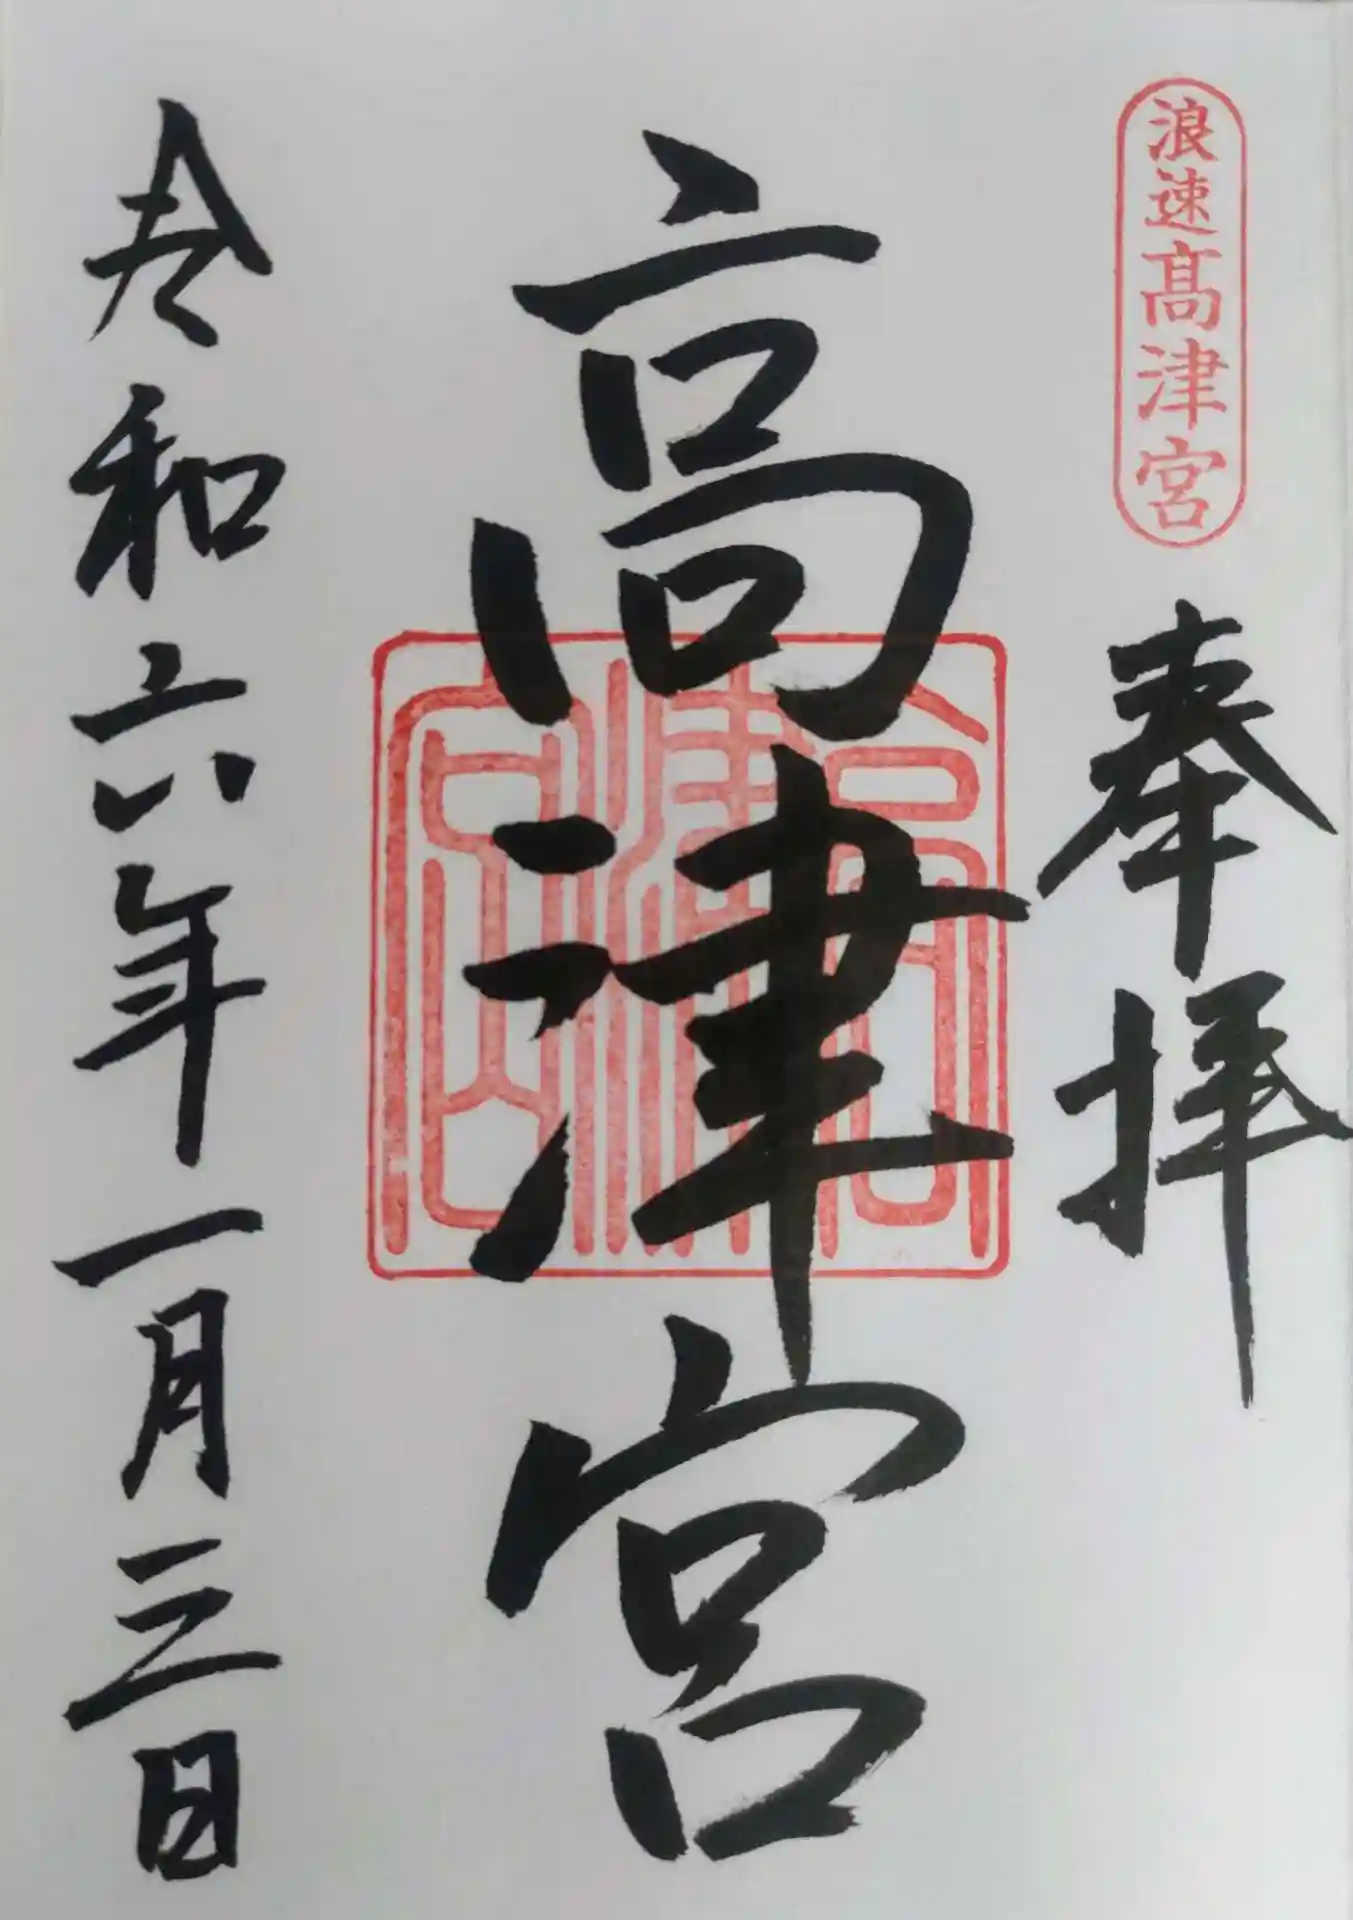 浪速髙津宮
奉拝
高津宮
高津宮
令和六年一月三日